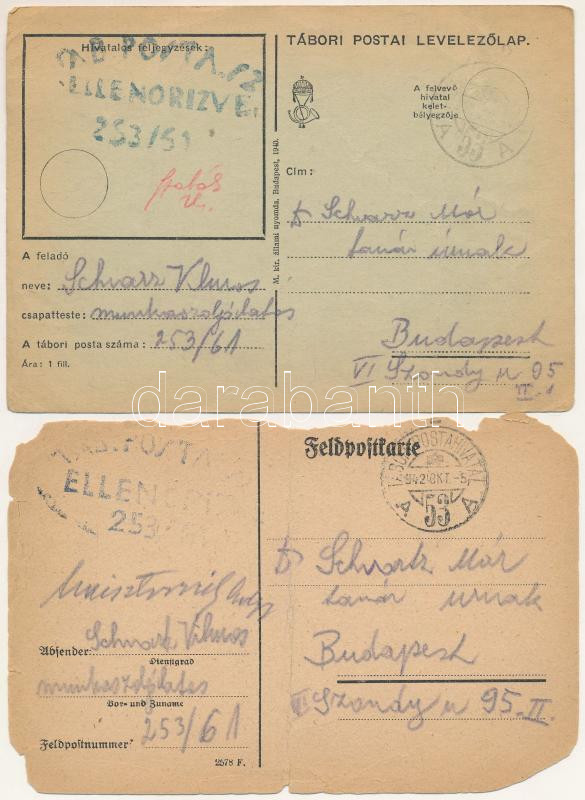 Hivatalos feljegyzések:
TAB. POSTA
ELLENORIZVE
253/51
TÁBORI POSTAI LEVELEZŐLAP.
A felvevő
hivatal
kelet-
bélyegzője
53
A A
M. kir. állami nyomda, Budapest, 1940.
Cím:
Schwarz Mór
tanár úrnak
Budapest
VI Szondy u 95
II.
A feladó
neve: Schwarz Vilmos
csapatteste: munkaszolgálatos
A tábori posta száma: 253/61
Ára: 1 fill.
darabanth
TAB. POSTA
ELLEN
253
Feldpostkarte
TÁBORI POSTAHIVATAL
942 OKT. -5
53
A A
Schwartz Mór
tanár urnak
Budapest
VI Szondy u 95. II.
Absender: Schwartz Vilmos
Dienstgrad
munkaszolgálatos
Vor- und Zuname
Feldpostnummer 253/61
2578 F.